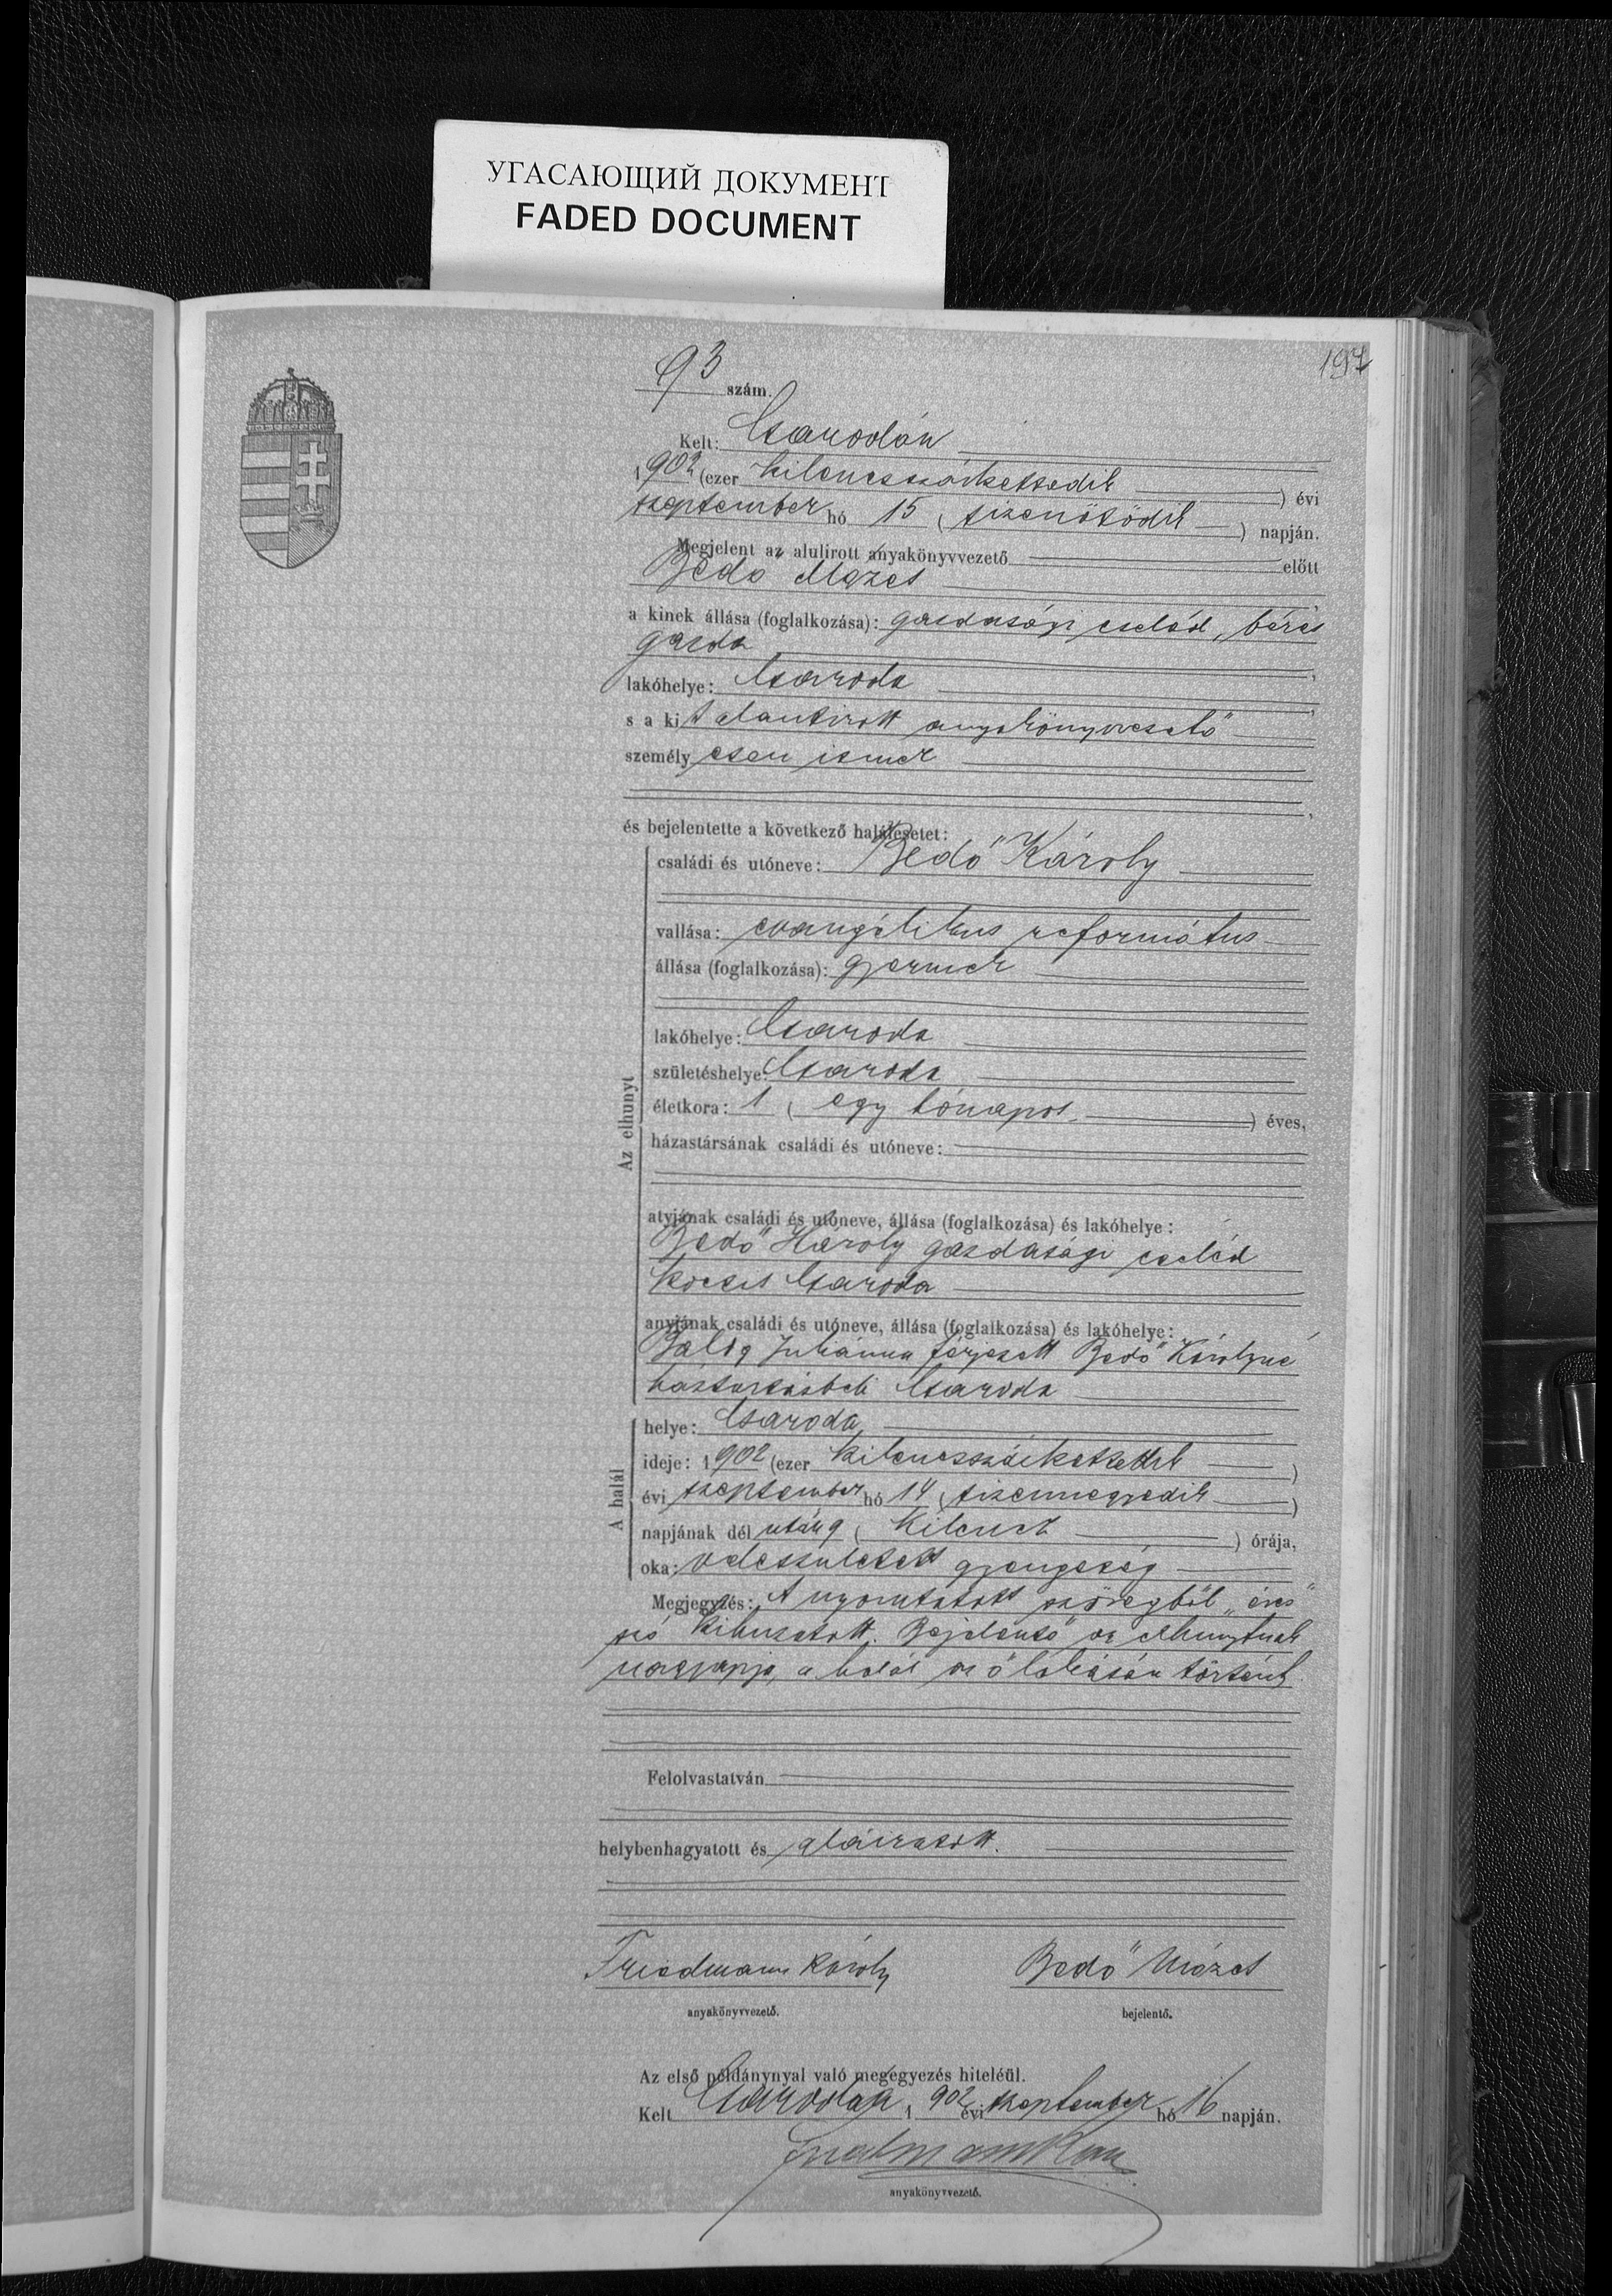 УГАСАЮЩИЙ ДОКУМЕНТ
FADED DOCUMENT
197
93 szám.
Kelt: Csarodán
1902 (ezer kilencszázkettedik) évi
szeptember hó 15 (tizenötödik) napján.
Megjelent az alulirott anyakönyvvezető előtt
Bedő Mózes
a kinek állása (foglalkozása): gazdasági cseléd, béres
gazda
lakóhelye: Csaroda
s a kit alantirott anyakönyvvezető
személyesen ismer
és bejelentette a következő halálesetet:
Az elhunyt
családi és utóneve: Bedő Károly
vallása: evangélikus református
állása (foglalkozása): gyermek
lakóhelye: Csaroda
születéshelye: Csaroda
életkora: 1 (egy hónapos) éves,
házastársának családi és utóneve:
atyjának családi és utóneve, állása (foglalkozása) és lakóhelye:
Bedő Károly gazdasági cseléd
kocsis Csaroda
anyjának családi és utóneve, állása (foglalkozása) és lakóhelye:
Balog Juliánna férjezett Bedő Károlyné
háztartásbeli Csaroda
A halál
helye: Csaroda
ideje: 1902 (ezer kilencszázkettedik)
évi szeptember hó 14 (tizennegyedik)
napjának dél után 9 (kilencz) órája,
oka: veleszületett gyengeség
Megjegyzés: A nyomtatott szövegből „éves"
szó kihuzatott. Bejelentő az elhunytnak
nagyapja, a halál az ő lakásán történt
Felolvastatván
helybenhagyatott és aláiratott.
Friedmann Károly Bedő Mózes
anyakönyvvezető. bejelentő.
Az első példánynyal való megegyezés hiteléül.
Kelt Csarodán 1902 évi szeptember hó 16 napján.
anyakönyvvezető.